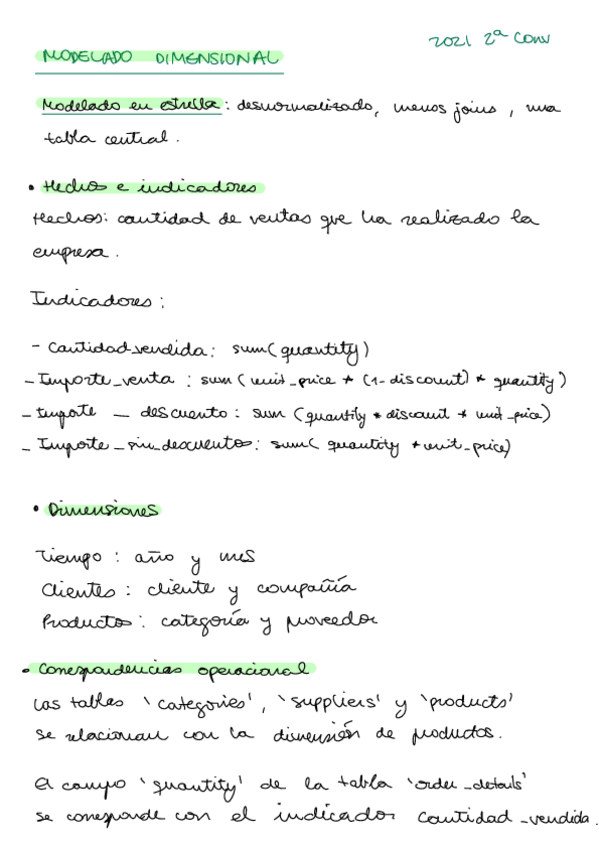 2021 2ª Conv
MODELADO DIMENSIONAL
Modelado en estrella: desnormalizado, menos joins, una
tabla central.
• Hechos e indicadores
Hechos: cantidad de ventas que ha realizado la
empresa.
Indicadores:
- Cantidad_vendida: sum(quantity)
- Importe_venta: sum(unit_price * (1-discount) * quantity)
- Importe_descuento: sum(quantity * discount * unit_price)
- Importe_sin_descuento: sum(quantity * unit_price)
• Dimensiones
Tiempo: año y mes
Clientes: cliente y compañía
Productos: categoría y proveedor
• Correspondencias operacional
Las tablas 'categories', 'suppliers' y 'products'
se relacionan con la dimensión de productos.
El campo 'quantity' de la tabla 'order_details'
se corresponde con el indicador Cantidad_vendida.